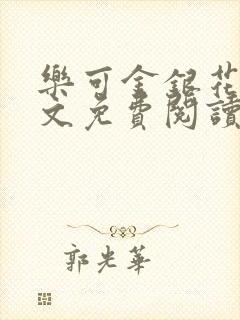 樂可金銀花
文免費閱讀
郭光華